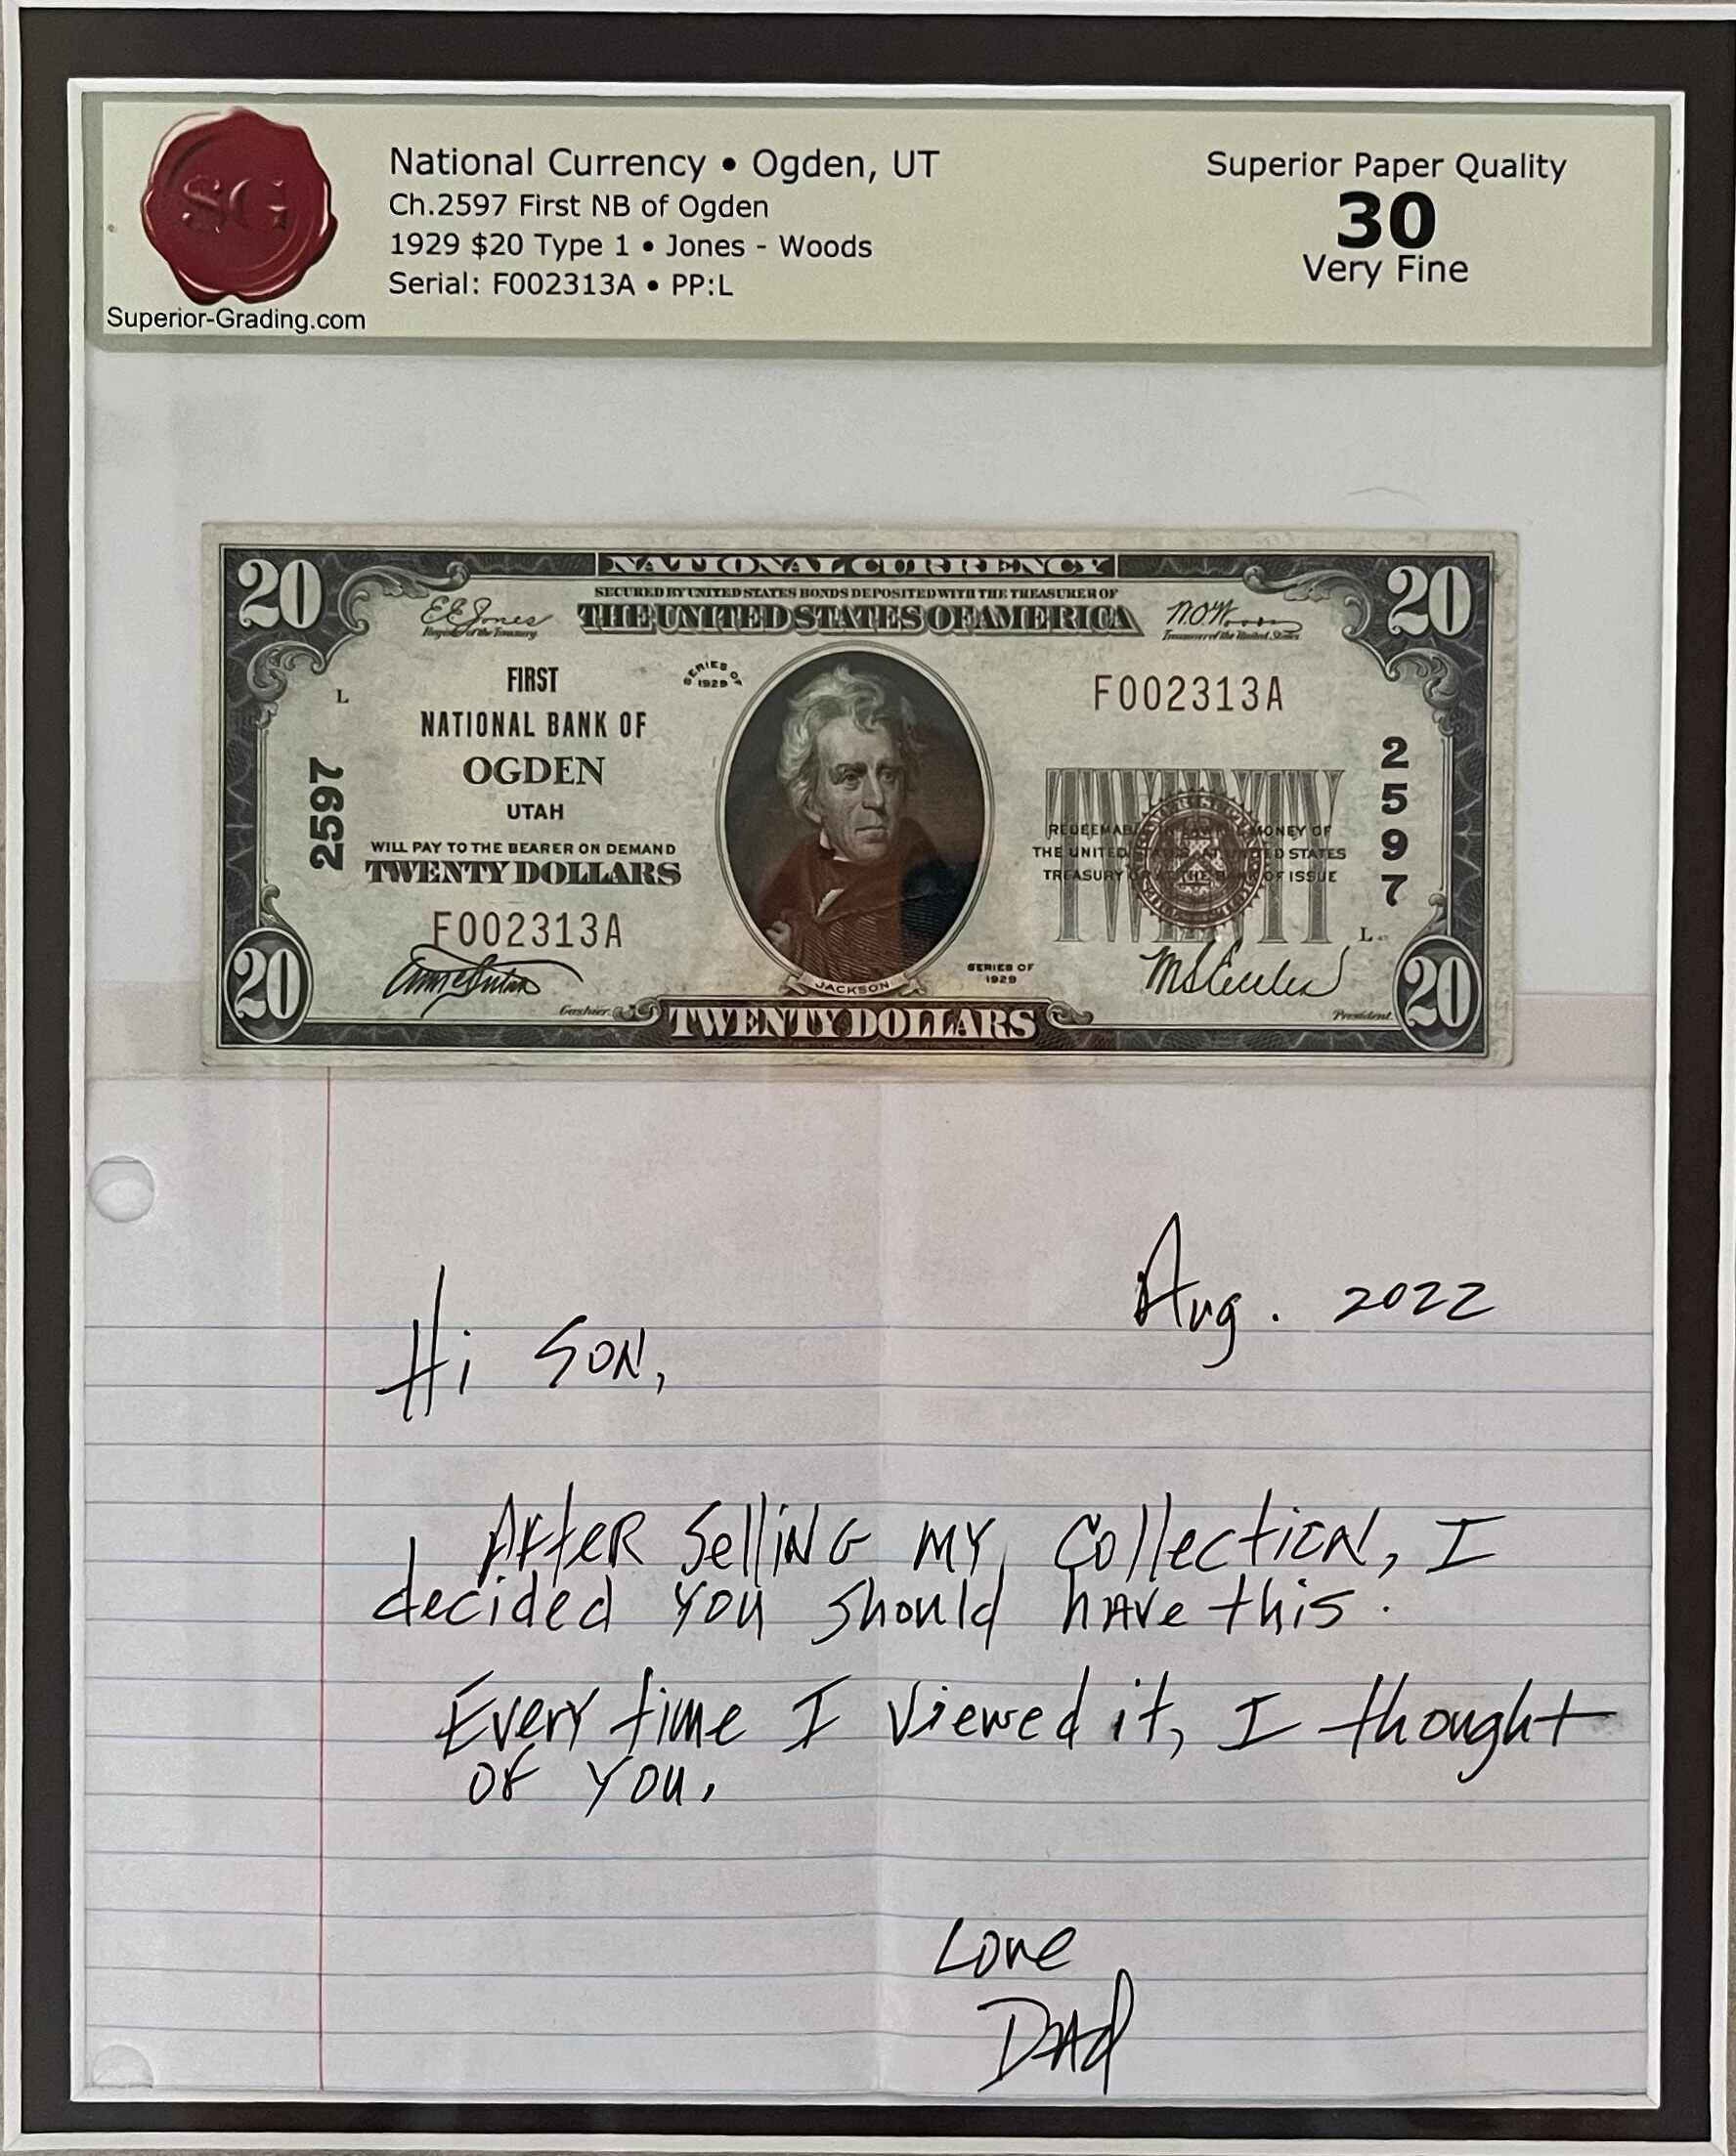 SG
Superior-Grading.com
National Currency • Ogden, UT
Ch.2597 First NB of Ogden
1929 $20 Type 1 • Jones - Woods
Serial: F002313A • PP:L
Superior Paper Quality
30
Very Fine
NATIONAL CURRENCY
SECURED BY UNITED STATES BONDS DEPOSITED WITH THE TREASURER OF
THE UNITED STATES OF AMERICA
20
20
E E Jones
Register of the Treasury
W.O. Woods
Treasurer of the United States
FIRST
NATIONAL BANK OF
OGDEN
UTAH
WILL PAY TO THE BEARER ON DEMAND
TWENTY DOLLARS
F002313A
L
2597
Cashier
SERIES OF
1929
JACKSON
F002313A
2597
TWENTY
REDEEMABLE IN LAWFUL MONEY OF
THE UNITED STATES AT UNITED STATES
TREASURY OR AT THE BANK OF ISSUE
L
SERIES OF
1929
President
20
20
TWENTY DOLLARS
Aug. 2022
Hi Son,
After Selling my collection, I
decided you should have this.
Every time I viewed it, I thought
of you.
Love
Dad